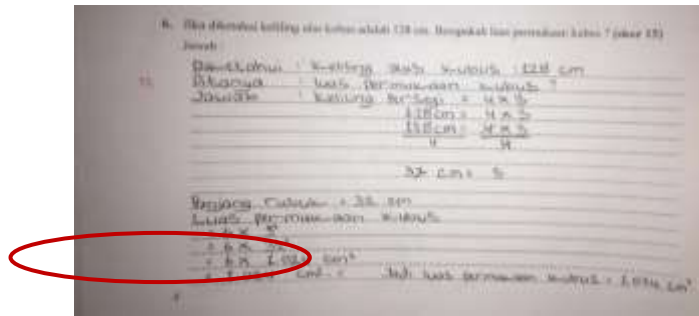 6. Jika diketahui keliling alas kubus adalah 128 cm. Berapakah luas permukaan kubus ? (skor 15)
Jawab
Diketahui : Keliling alas kubus : 128 cm
Ditanya : luas permukaan kubus ?
Jawab : Keliling Persegi = 4 x S
128 cm = 4 x S
128 cm = 4 x S
4 4
32 cm = S
Panjang rusuk = 32 cm
Luas permukaan kubus
= 6 x S²
= 6 x 32²
= 6 x 1.024 cm²
cm² = Jadi luas permukaan kubus = cm²